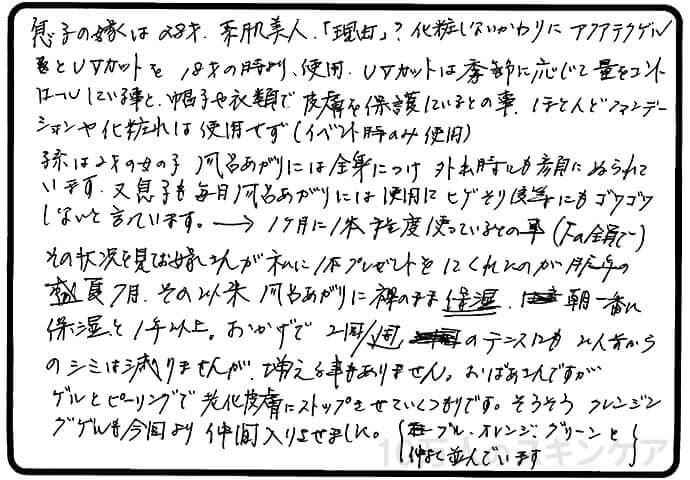 息子の嫁は28才、素肌美人、「理由」？化粧しないかわりに アクアテクトゲル
とUVカットを 18才の時より、使用、UVカットは季節に応じて量をコント
ロールしている事と、帽子や衣類で皮膚を保護しているとの事、ほとんどファンデー
ションや化粧水は使用せず（イベント時のみ使用）
孫は2才の女の子 風呂あがりには全身につけ 外出時にも顔にぬられて
います。又息子も毎日風呂あがりには使用し ヒゲそり後等にもゴワゴワ
しないと言っています。→ 1ヶ月に1本程度使っているとの事（全員で）
その状況を見てお嫁さんが私に1本プレゼントをしてくれたのが昨年の
真夏7月、その以来 風呂あがりに裸のまま保湿、朝一番に
保湿、と1年以上。おかげで 2回/週 のテニスにも 以前から
のシミは減りませんが、増える事もありません。おばあさんですが
ゲルとピーリングで老化皮膚にストップさせていくつもりです。そうそう クレンジン
グゲルも今回より仲間入りさせました。｛ブルー・オレンジ・グリーンと
仲よく並んでいます｝
10万人のスキンケア